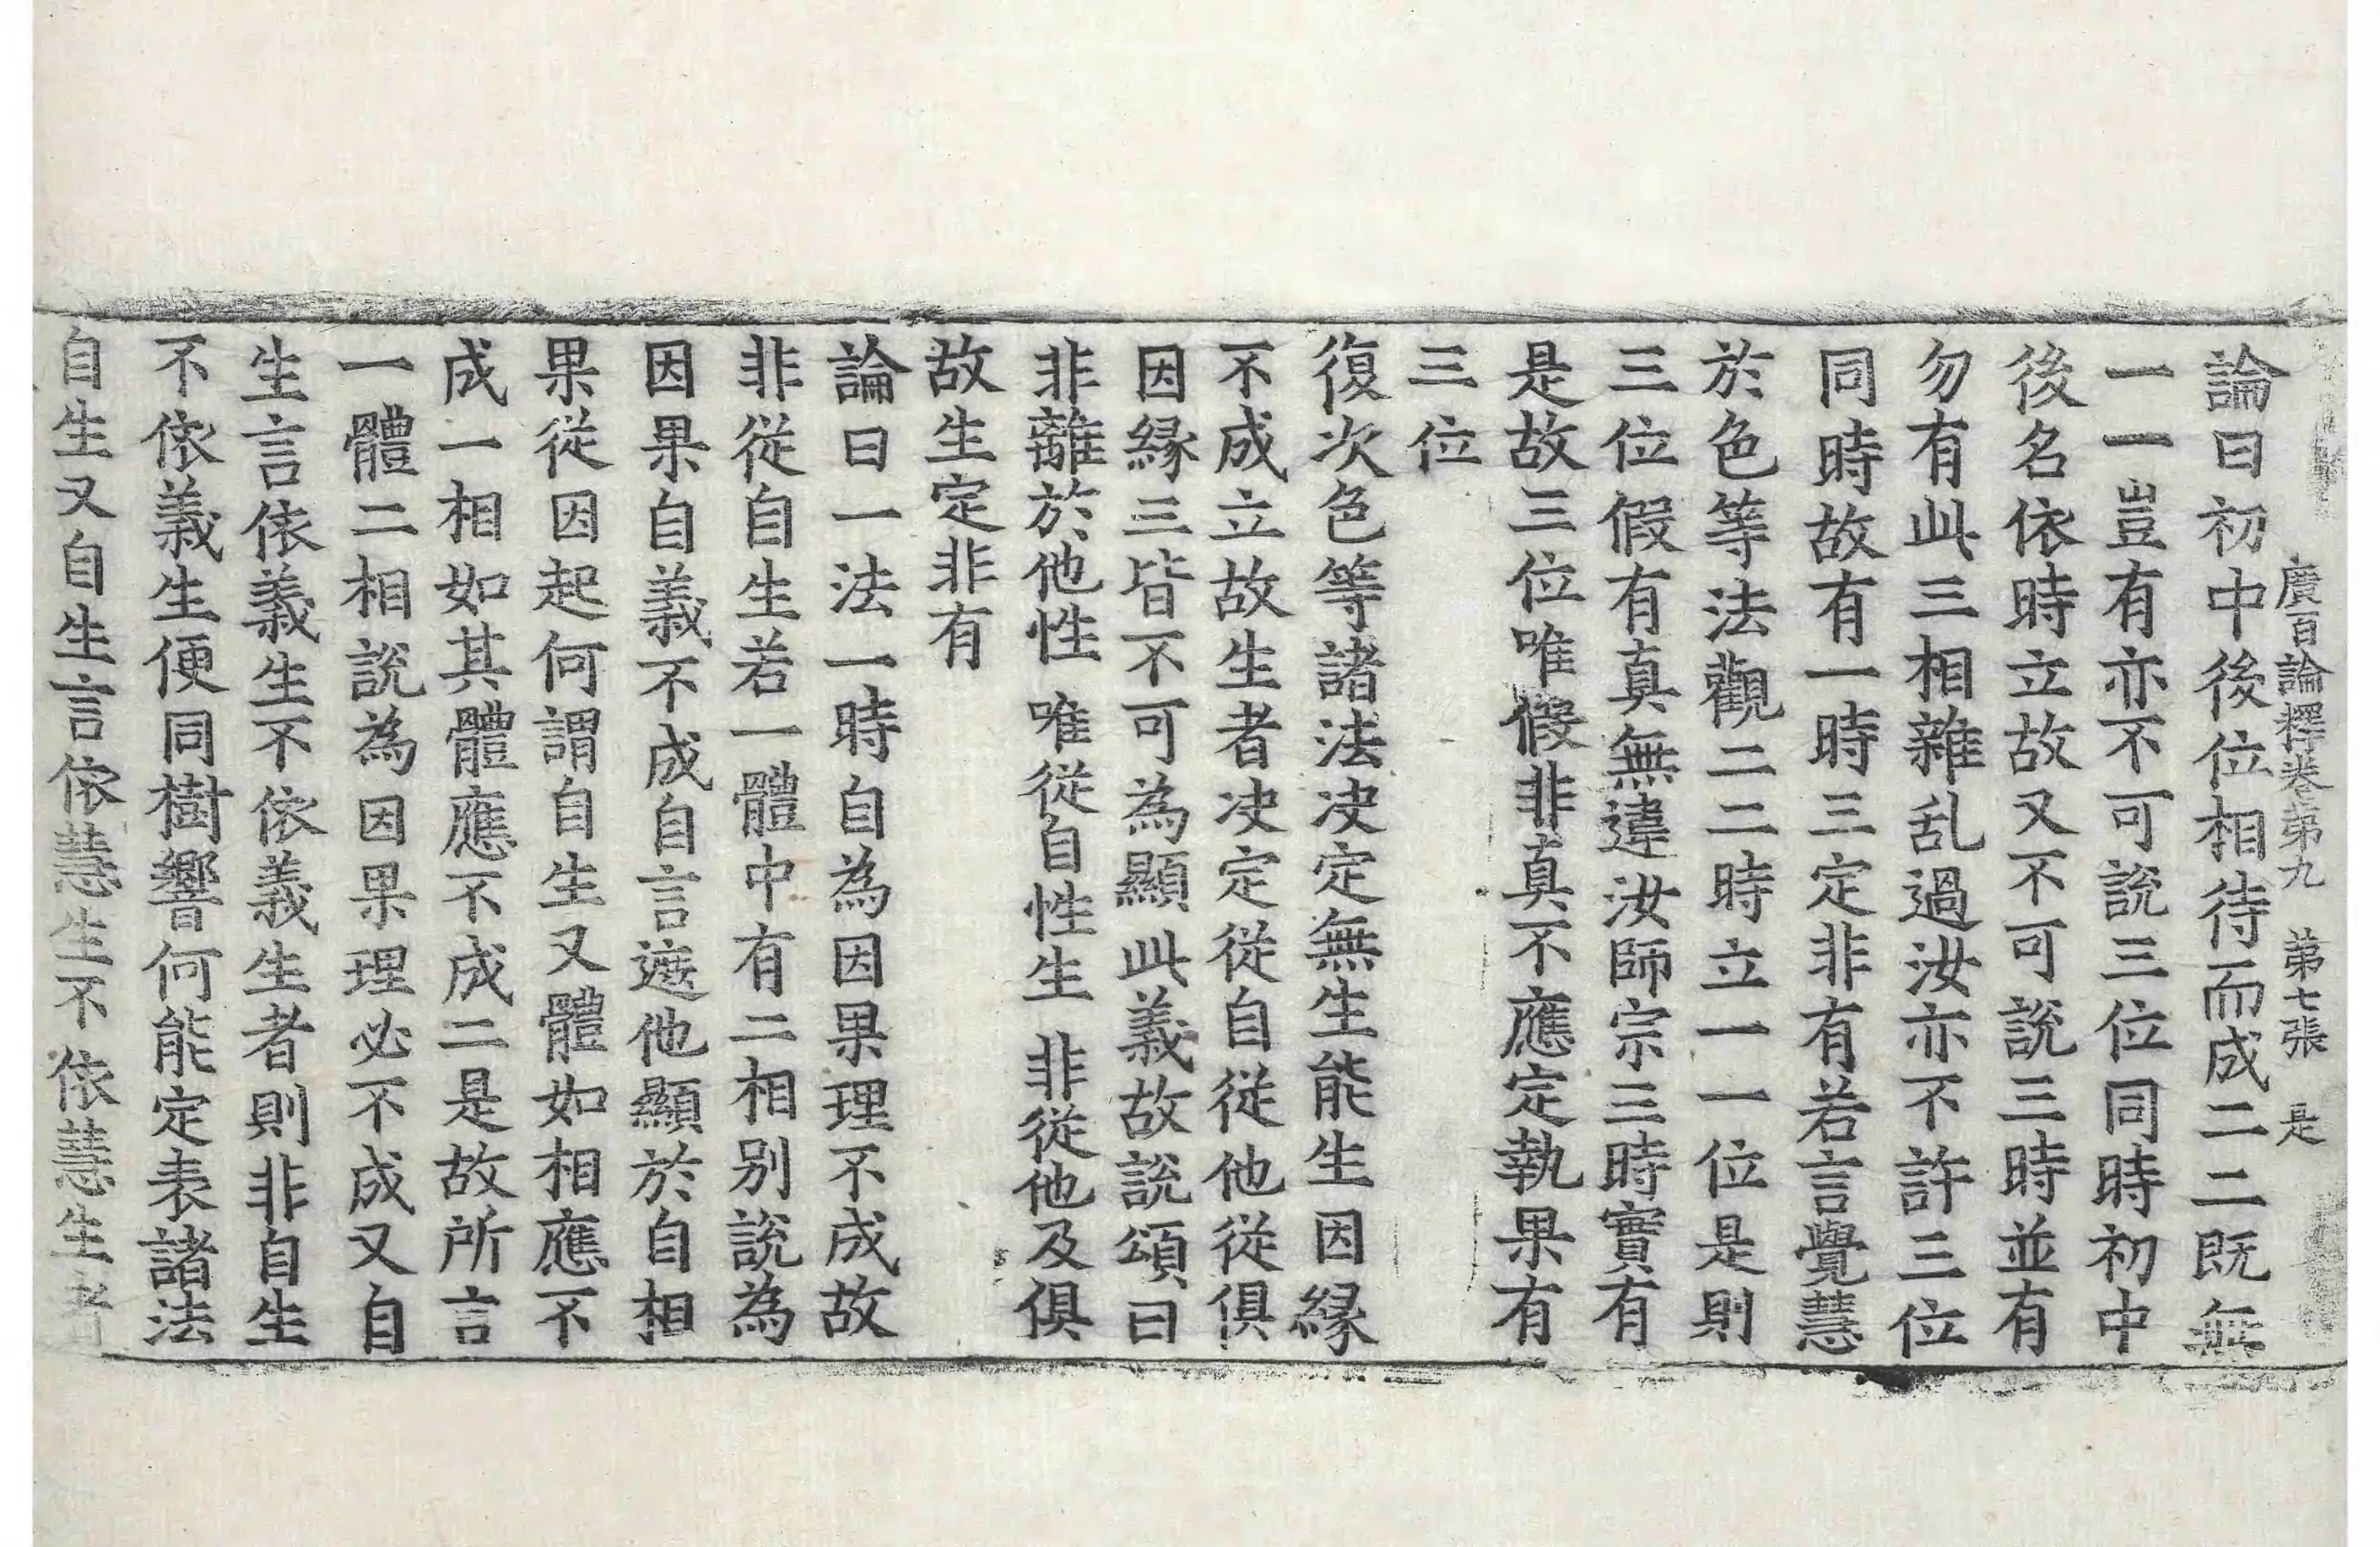 廣百論釋卷第九　第七張　是
論曰初中後位相待而成二二既無
一一豈有亦不可說三位同時初中
後名依時立故又不可說三時並有
勿有此三相雜乱過汝亦不許三位
同時故有一時三定非有若言覺慧
於色等法觀二二時立一一位是則
三位假有真無違汝師宗三時實有
是故三位唯假非真不應定執果有
三位
復次色等諸法决定無生能生因縁
不成立故生者决定從自從他從俱
因縁三皆不可為顯此義故說頌曰
非離於他性　唯從自性生　非從他及俱
故生定非有
論曰一法一時自為因果理不成故
非從自生若一體中有二相别說為
因果自義不成自言遮他顯於自相
果從因起何謂自生又體如相應不
成一相如其體應不成二是故所言
一體二相說為因果理必不成又自
生言依義生不依義生者則非自生
不依義生便同樹響何能定表諸法
自生又自生言依慧生不依慧生者